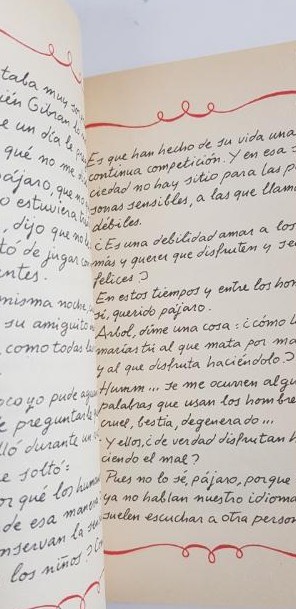 taba muy
ién Gibran
e un día le
qué no me
pájaro, que no
o estuviera
, dijo que no
tó de jugar con
antes.
misma noche,
su amiguito
, como todas
oco yo pude
e preguntarle
lló durante un
e soltó:
or qué los
de esa manera
nservan la
los niños?
Es que han hecho de su vida una
continua competición. Y en esa
ciedad no hay sitio para las
sonas sensibles, a las que llam
débiles.
¿Es una debilidad amar a los
más y querer que disfruten y se
felices?
En estos tiempos y entre los hom
sí, querido pájaro.
Arbol, dime una cosa: ¿cómo
maríastú al que mata por
y al que disfruta haciéndolo?
Humm... se me ocurren algu
palabras que usan los hombre
cruel, bestia, degenerado...
- Y ellos, ¿de verdad disfrutan h
ciendo el mal?
Pues no lo sé, pájaro, porque
ya no hablan nuestro idioma
suelen escuchar a otra person